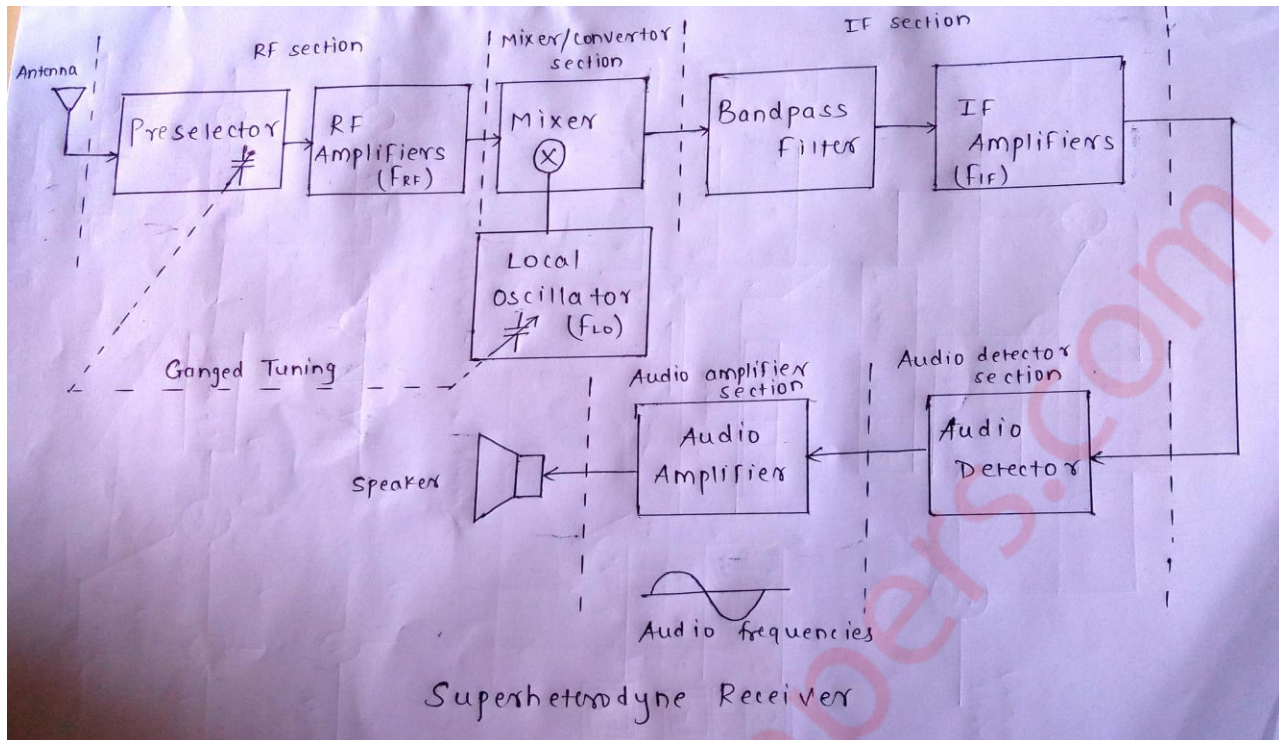 Antenna
RF section
Mixer/convertor
section
IF section
Preselector
RF
Amplifiers
(fRF)
Mixer
X
Bandpass
Filter
IF
Amplifiers
(fIF)
Local
Oscillator
(fLO)
Ganged Tuning
Audio amplifier
section
Audio detector
section
Speaker
Audio
Amplifier
Audio
Detector
Audio frequencies
Superheterodyne Receiver
pers.com